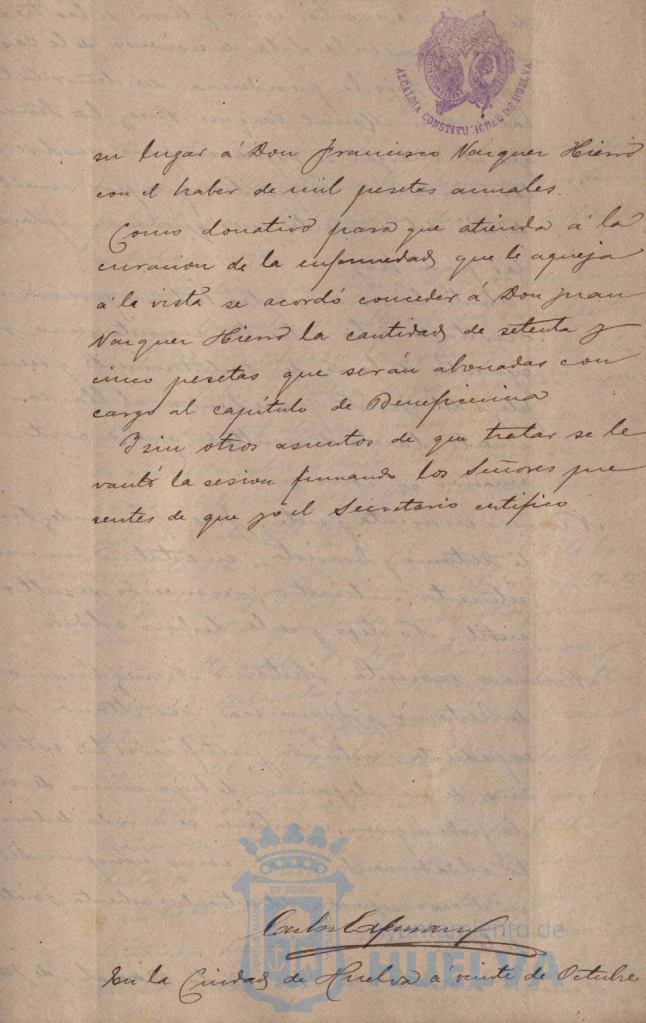 ALCALDIA CONSTITUCIONAL DE HUELVA
su lugar á Don Francisco Vazquez Hierro
con el haber de mil pesetas anuales.
Como donativo para que atienda á la
curacion de la enfermedad que le aqueja
á la vista se acordó conceder á Don Juan
Vazquez Hierro la cantidad de setenta y
cinco pesetas que serán abonadas con
cargo al capítulo de Beneficencia
Y sin otros asuntos de que tratar se le
vantó la sesion firmando los Señores pre
sentes de que yó el Secretario certifico
ET TERRAE
PORTUS MARIS
Ayuntamiento de
HUELVA
En la Ciudad de Huelva á veinte de Octubre